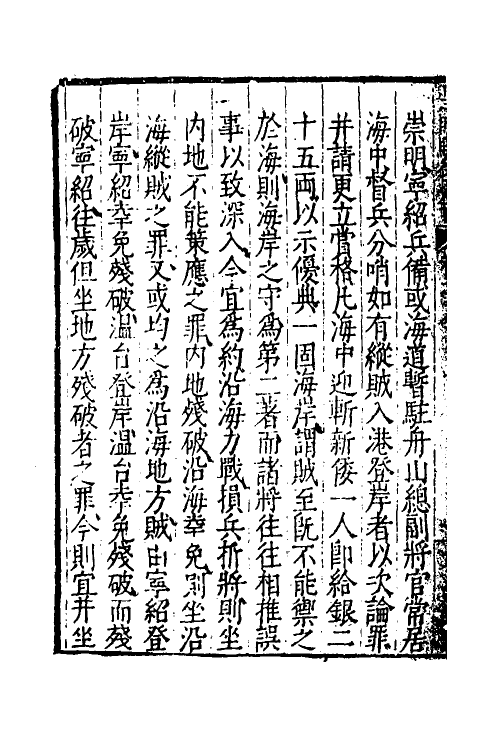 崇明寧紹兵備或海道暫駐舟山總副將官常居
海中督兵分哨如有縱賊入港登岸者以次論罪
并請更立賞格凡海中迎斬新倭一人即給銀二
十五兩以示優典一固海岸謂賊至既不能禦之
於海則海岸之守為第二著而諸將往往相推誤
事以致深入今宜為約沿海力戰損兵折將則坐
內地不能策應之罪內地殘破沿海幸免則坐沿
海縱賊之罪又或均之為沿海地方賊由寧紹登
岸寧紹幸免殘破溫台登岸溫台幸免殘破而殘
破寧紹往歲但坐地方殘破者之罪今則宜并坐